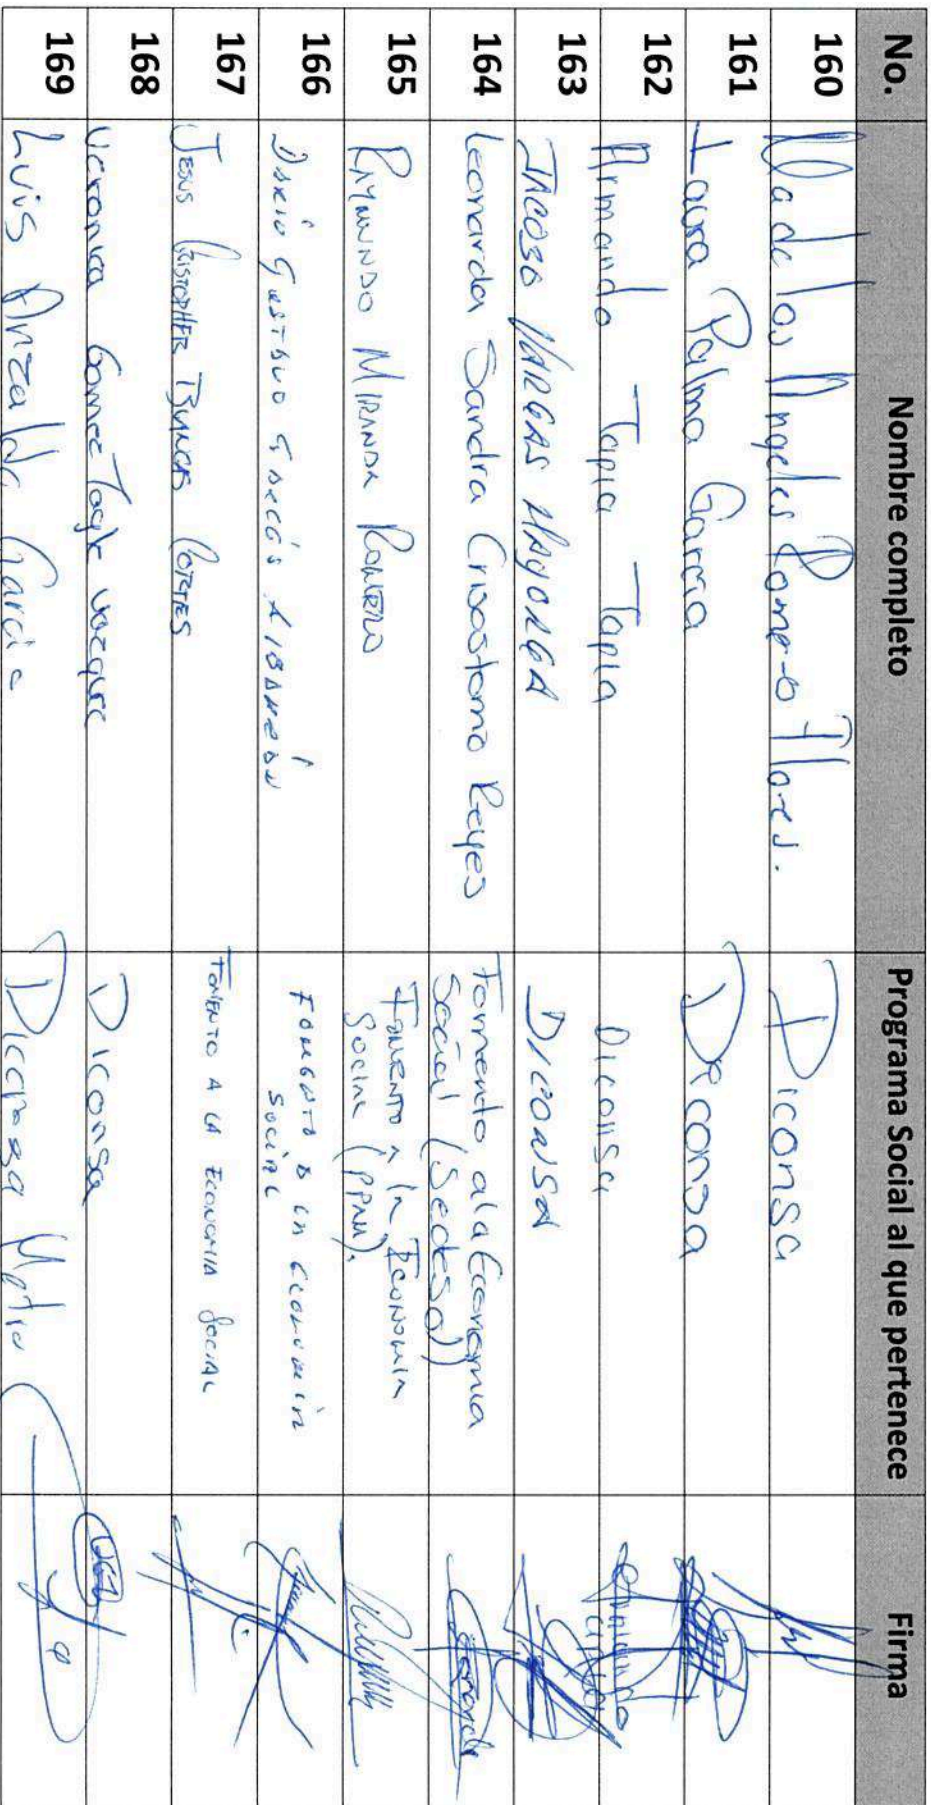 No. Nombre completo Programa Social al que pertenece Firma
160 Ma de los Angeles Romero Flores. Diconsa
161 Laura Palma Garcia Diconsa
162 Armando Tapia Tapia Diconsa
163 JACOBO VARGAS MAYORGA DICONSA
164 Leonarda Sandra Crisostomo Reyes Fomento a la Economia
Social (Sedesol)
165 RAYMUNDO MIRANDA ROMERO FOMENTO A LA ECONOMIA
SOCIAL (PPAM).
166 DARIO GUSTAVO FOMENTO A LA ECONOMIA
SOCIAL
167 JESUS CRISTOPHER CORTES FOMENTO A LA ECONOMIA SOCIAL
168 Veronica Gomez Tagle Vazquez Diconsa
169 Luis Anzaldo Garcia Diconsa